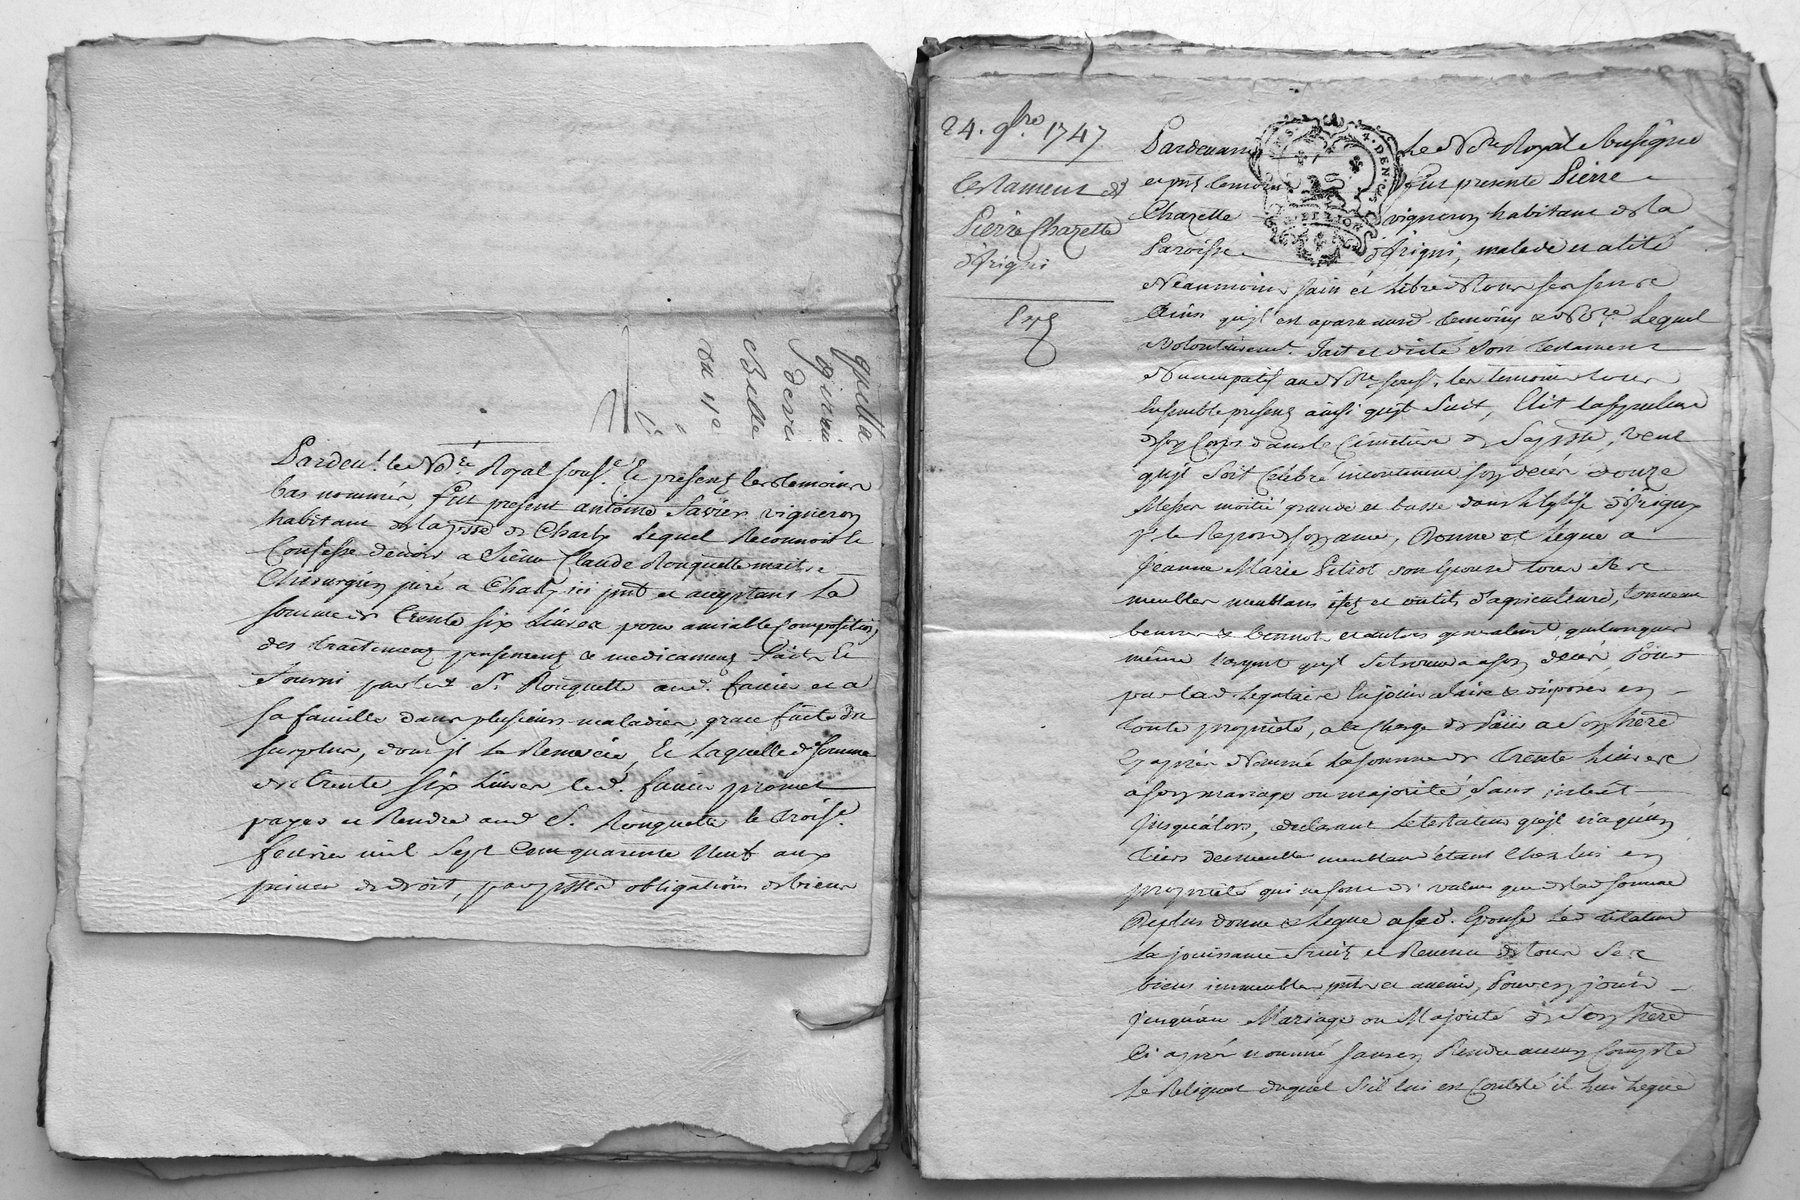 quitta
Sr
Belle
du 11e
Pardevt. le Nore Royal souse. Et presents les temoins
bas nommés, fut present antoine favier vigneron
habitant de la psse de Charly lequel Reconnoit &
Confesse devoir a Sieur Claude Rouquette maitre
Chirurgien juré a Charly ici pnt et acceptant La
somme de trente six Livres pour amiable Composition,
des traitements pensements & medicaments faits Et
fournis par led Sr. Rouquette aud. favier et a
sa famille dans plusieurs maladies, grace faite du
surplus, dont il Le Remercie, Et Laquelle de somme
de trente six Livres led. favier promet
payer et Rendre aud S. Rouquette le trois
fevrier mil Sept Cent quarante Neuf aux
peines de droit, par obligation de biens
24. 9bre 1747
Testament de
Pierre Chazette
d'Irigni
Exp
Pardevant Le Nore Royal Soussigné
et pnts temoins fut presente Pierre
Chazette vigneron habitant de la
Paroisse d'Irigni, malade et alité
Neanmoins sain et Libre de tous ses sens
Ainsi qu'il est aparu auxd. temoins & Nore. Lequel
a volontairemt. fait et dicté Son testament
Nuncupatif aud Nore souse. les temoins tous
Ensemble presents ainsi qu'il Suit, Elit la sepulture
de son Corps dans le Cimetiere de Sa psse, veut
qu'il soit Celebré incontinent son decés douze
Messes moitié grandes et basses dans L'Eglise d'Irigny
pr le Repos de son ame, Donne et Legue a
Jeanne Marie Pitiot son Epouse tous et ses
meubles meublans efets et outils d'agriculture, tonneaux
bennes & et autres generalemt. quelconques
même L'argent qu'il se trouvera a son deces Pour
par lad. Legataire En jouir faire & disposer en
toute proprieté, a la Charge de Païer a Son here
Cy après Nommé La somme de trente Livres
a son mariage ou majorité, Sans interêt
jusqu'alors, declarant Le testateur qu'il n'a qu'un
tiers des meubles meublans étant Chez lui en
proprieté qui ne sont de valeur que de lad somme
De plus donne & Legue a sad. Epouse Led testateur
La jouissance fruits et Revenus de tous Ses
biens immeubles pnts et avenir, Pour en jouir
jusqu'au Mariage ou Majorité de Son here
Ci après nommé sans en Rendre aucun Compte
Le Reliquat duquel S'il lui est Contesté il Lui Legue